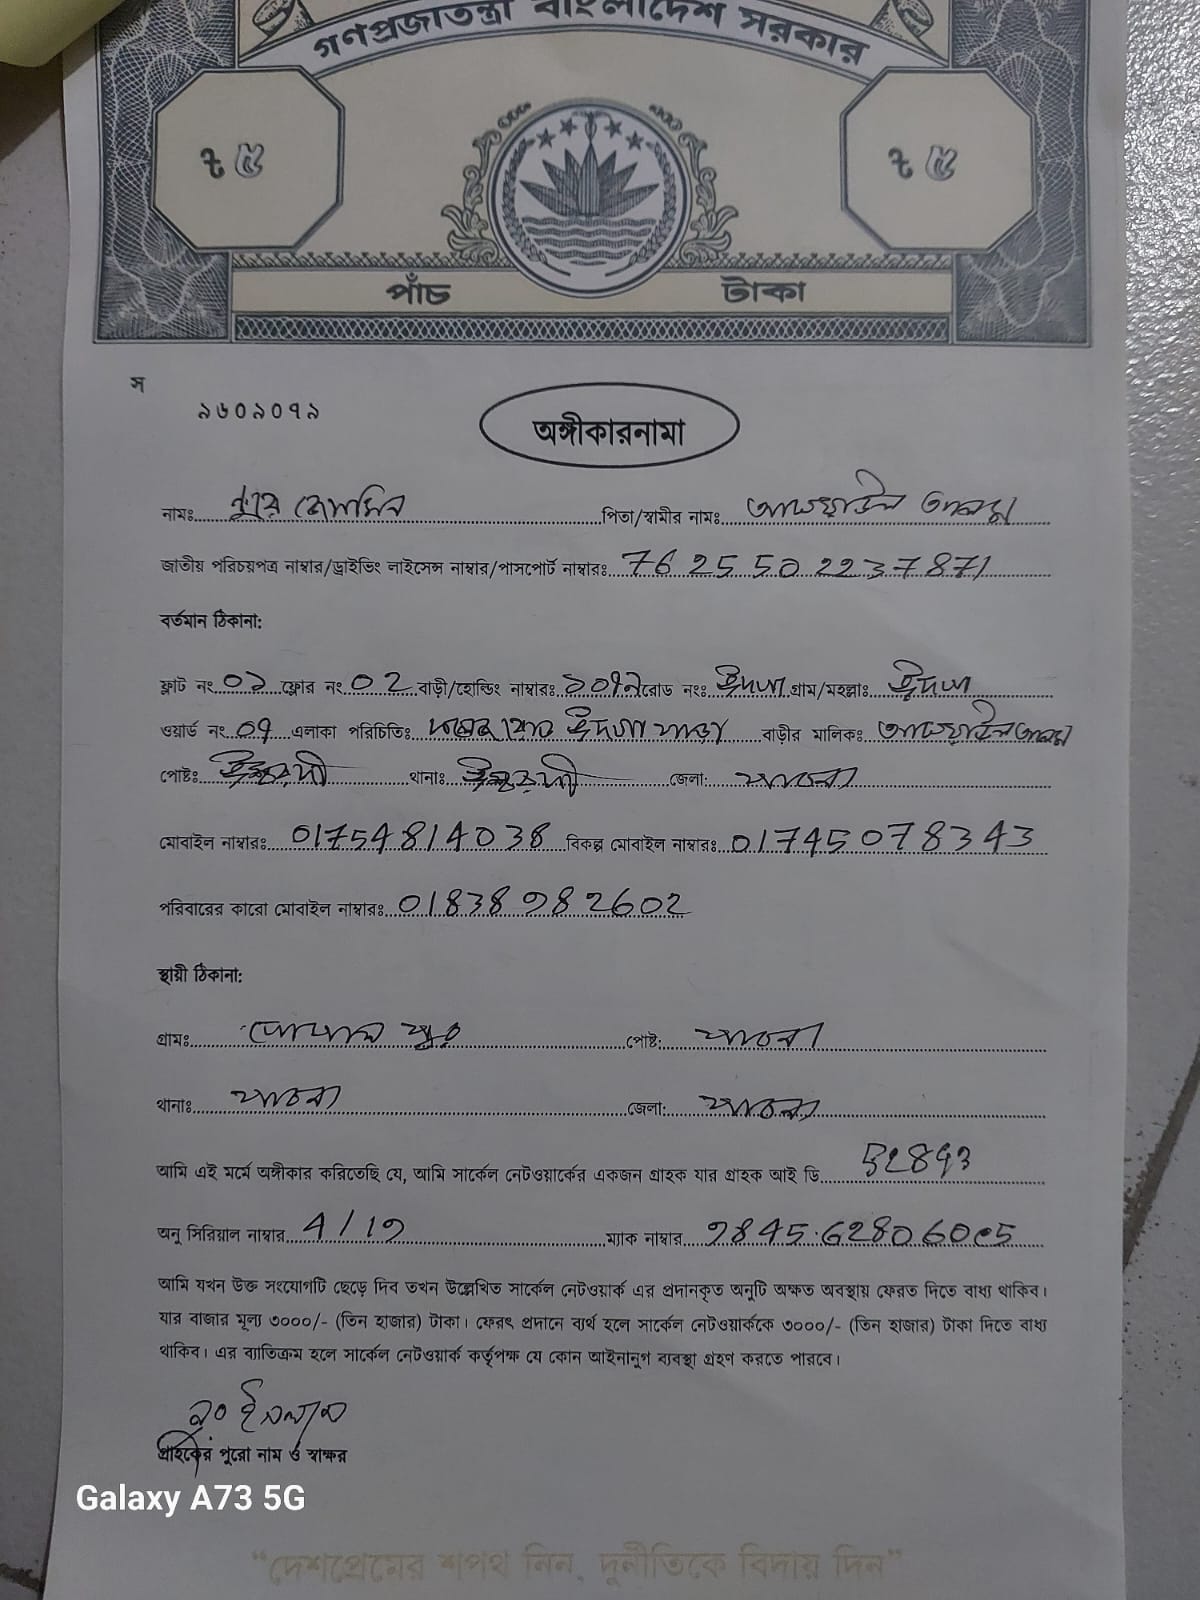 গণপ্রজাতন্ত্রী বাংলাদেশ সরকার
৳ ৫ ৳ ৫
পাঁচ টাকা
স
৯৬০৯০৭৯
অঙ্গীকারনামা
নামঃ পিতা/স্বামীর নামঃ
জাতীয় পরিচয়পত্র নাম্বার/ড্রাইভিং লাইসেন্স নাম্বার/পাসপোর্ট নাম্বারঃ 7625502237871
বর্তমান ঠিকানা:
ফ্লাট নং ০১ ফ্লোর নং 02 বাড়ী/হোল্ডিং নাম্বারঃ রোড নংঃ ঈদগা গ্রাম/মহল্লাঃ ঈদগা
ওয়ার্ড নং ০৭ এলাকা পরিচিতিঃ ঈদগা পাড়া বাড়ীর মালিকঃ
পোষ্টঃ ঈশ্বরদী থানাঃ ঈশ্বরদী জেলা: পাবনা
মোবাইল নাম্বারঃ 01754814038 বিকল্প মোবাইল নাম্বারঃ 01745078343
পরিবারের কারো মোবাইল নাম্বারঃ 01838982602
স্থায়ী ঠিকানা:
গ্রামঃ গোপাল পুর পোষ্ট: পাবনা
থানাঃ পাবনা জেলা: পাবনা
আমি এই মর্মে অঙ্গীকার করিতেছি যে, আমি সার্কেল নেটওয়ার্কের একজন গ্রাহক যার গ্রাহক আই ডি
অনু সিরিয়াল নাম্বার ম্যাক নাম্বার
আমি যখন উক্ত সংযোগটি ছেড়ে দিব তখন উল্লেখিত সার্কেল নেটওয়ার্ক এর প্রদানকৃত অনুটি অক্ষত অবস্থায় ফেরত দিতে বাধ্য থাকিব।
যার বাজার মূল্য ৩০০০/- (তিন হাজার) টাকা। ফেরৎ প্রদানে ব্যর্থ হলে সার্কেল নেটওয়ার্ককে ৩০০০/- (তিন হাজার) টাকা দিতে বাধ্য
থাকিব। এর ব্যতিক্রম হলে সার্কেল নেটওয়ার্ক কর্তৃপক্ষ যে কোন আইনানুগ ব্যবস্থা গ্রহণ করতে পারবে।
গ্রাহকের পুরো নাম ও স্বাক্ষর
Galaxy A73 5G
“দেশপ্রেমের শপথ নিন, দুর্নীতিকে বিদায় দিন”